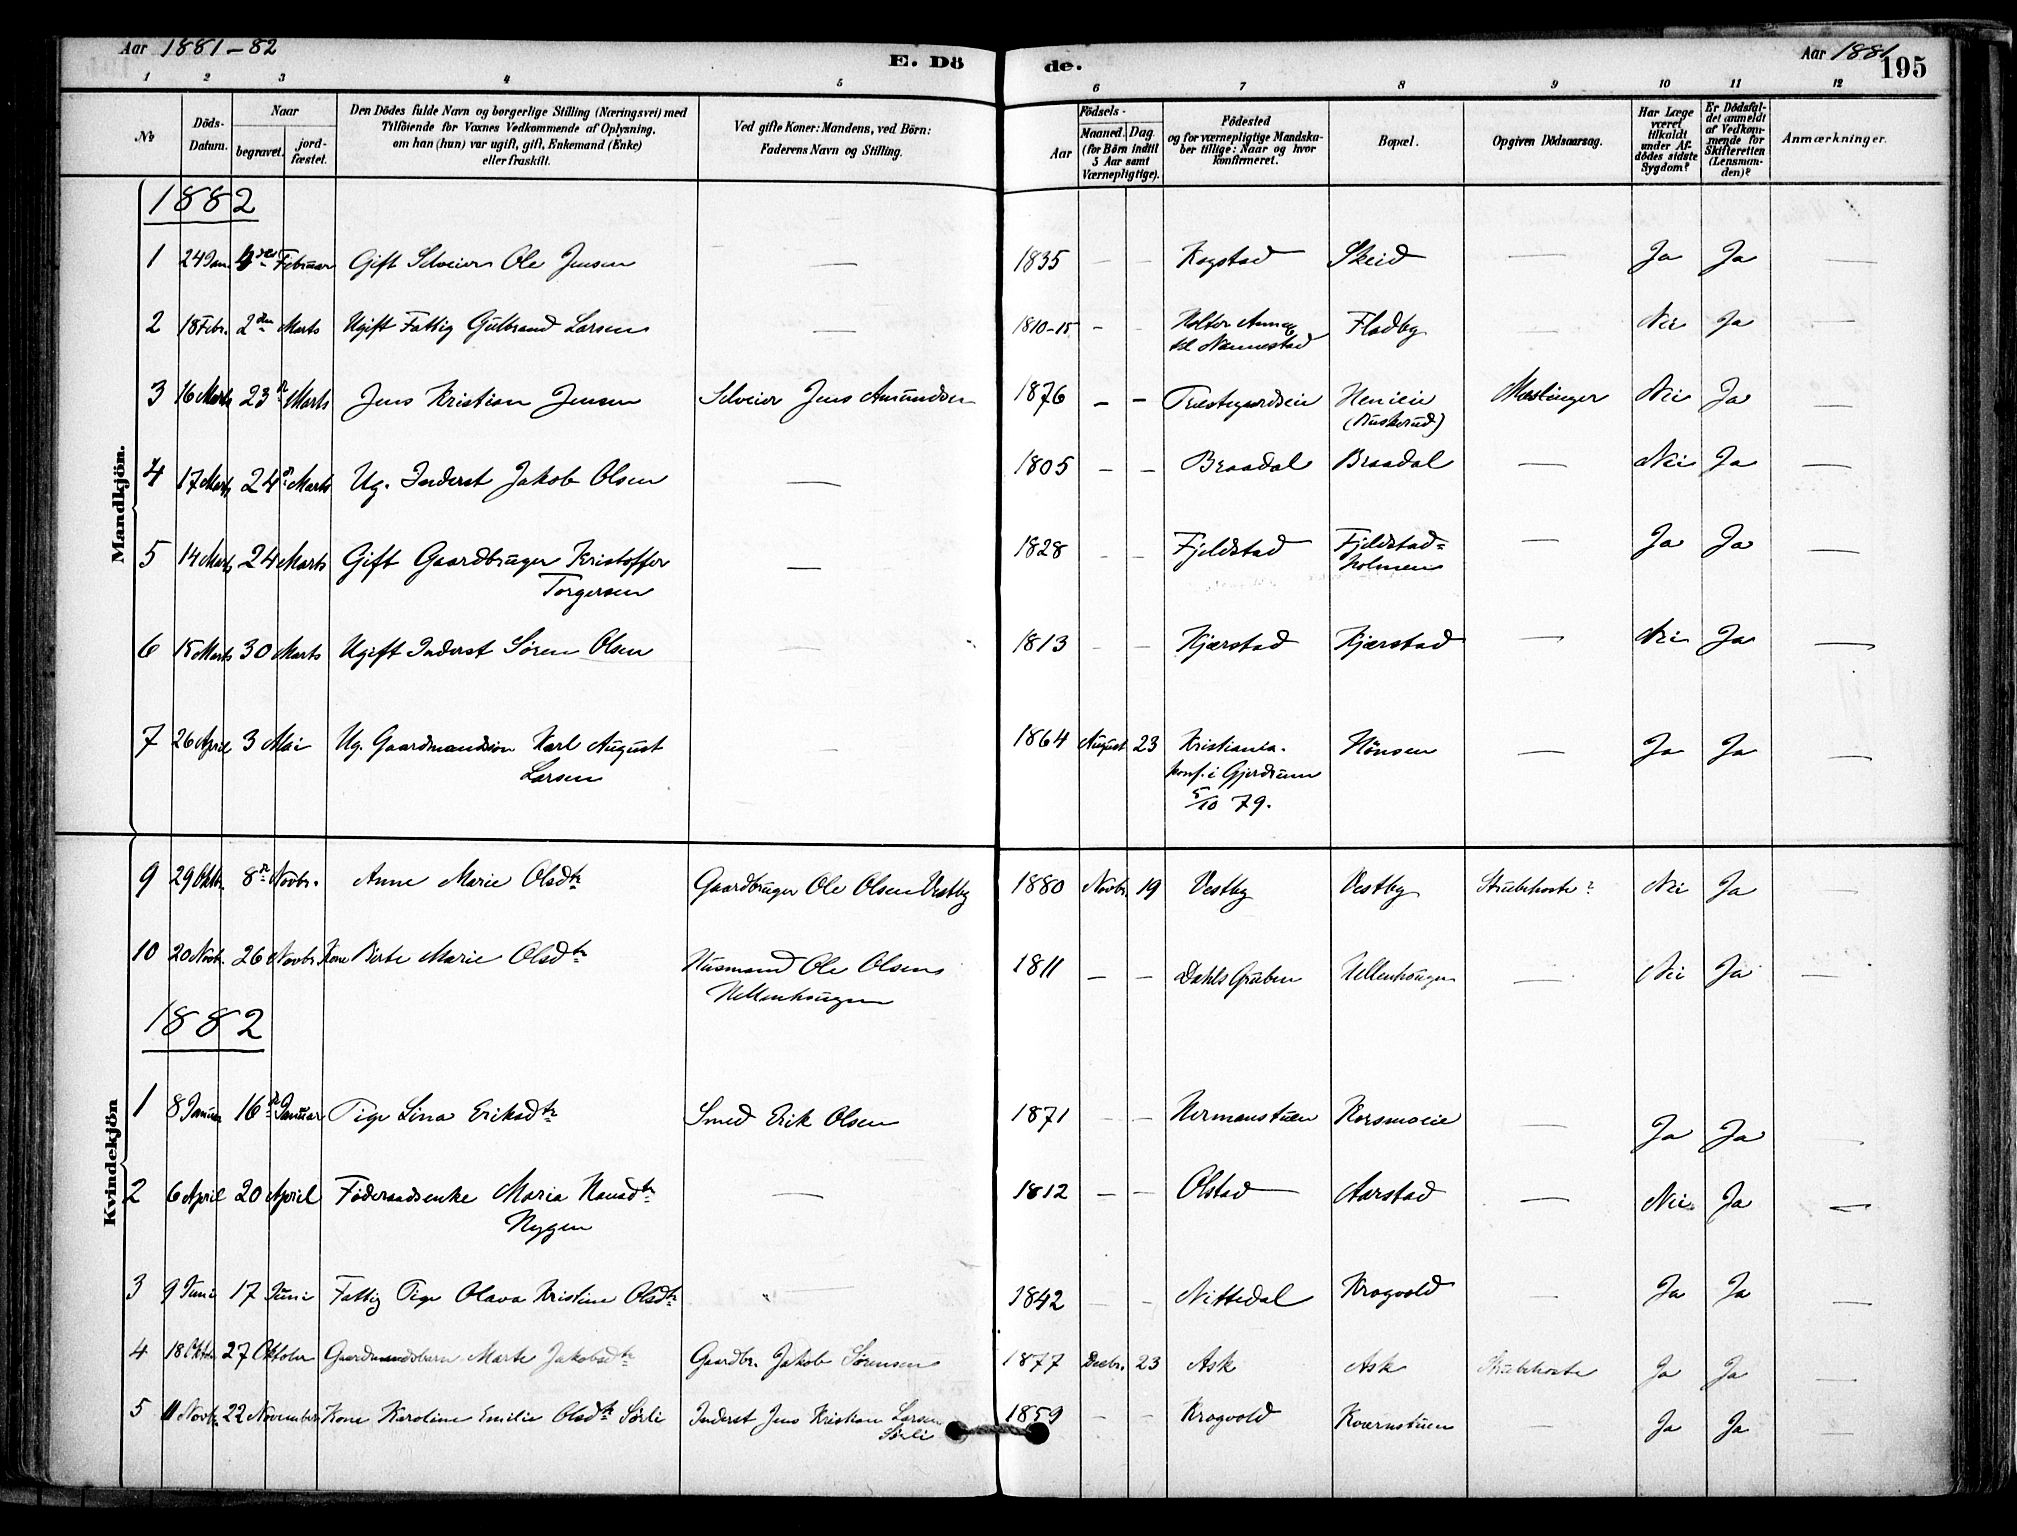 Aar 1881-82
E. Dö
de.
Aar 1881
195
1 2 3 4 5 6 7 8 9 10 11 12
No
Döds-Datum.
Naar
begravet.
jord-fæstet.
Den Dödes fulde Navn og borgerlige Stilling (Næringsvei) med
Tilföiende for Voxnes Vedkommende af Oplysning,
om han (hun) var ugift, gift, Enkemand (Enke)
eller fraskilt.
Ved gifte Koner: Mandens, ved Börn:
Faderens Navn og Stilling.
Födsels-
Aar
Maaned. Dag.
(for Börn indtil
5 Aar samt
Værnepligtige).
Födested
og for værnepligtige Mandska-
ber tillige: Naar og hvor
konfirmeret.
Bopæl.
Opgiven Dödsaarsag.
Har Læge
været
tilkaldt
under Af-
dödes sidste
Sygdom?
Er Dödsfal-
det anmeldt
af Vedkom-
mende for
Skifteretten
(Lensman-
den)?
Anmærkninger.
Mandkjön.
1882
1 24 Jan. 4de Februar Gift Selveier Ole Jensen — 1835 — — Kogstad Skeid — Ja Ja —
2 18 Febr. 2den Marts Ugift Fattig Gulbrand Larsen — 1810-15 - - Holter Annex til Nannestad Fladby Nei Ja —
3 16 Marts 23de Marts Jens Kristian Jensen Selveier Jens Amundsen 1876 - - Træstegardseie Henieie (Kuskerud) Meslinger Nei Ja —
4 17 Marts 24de Marts Ug. Inderst Jakob Olsen — 1805 — — Braadal Braadal — Nei Ja —
5 14 Marts 24 Marts Gift Gaardbruger Kristoffer
Torgersen — 1828 - - Fjeldstad Fjeldstad=
holmen — Ja Ja —
6 15 Marts 30 Marts Ugift Inderst Sören Olsen 1813 - - Kjærstad Kjærstad — Nei Ja —
7 26 April 3 Mai Ug. Gaardmandssön Karl August
Larsen — 1864 August 23 Kristiania.
konf. i Gjerdrum
5/10 79. Hönsen — Ja Ja —
Kvindekjön
9 29 Oktbr. 8de Novbr. Anne Marie Olsdtr Gaardbruger Ole Olsen Vestby 1880 Novbr. 19 Vestby Vestby Strubehoste? Nei Ja —
10 20 Novbr. 26 Novbr. Kone Berte Marie Olsdtr Husmand Ole Olsen
Hellenhaugen 1811 — — Dahls Gruben Hellenhaugen — Nei Ja —
1882
1 8 Januar 16de Januar Pige Lina Eriksdtr Smed Erik Olsen 1871 - - Hermanstuen Korsmoeie — Ja Ja —
2 6 April 20 April Föderaadsenke Maria Hansdtr
Nygen — 1812 — — Olstad Aarstad — Nei Ja —
3 9 Juni 17 Juni Fattig Pige Olava Kristine Olsdtr — 1842 - - Nittedal Krogvold — Ja Ja —
4 18 Oktbr. 27 Oktober Gaardmandsbarn Marte Jakobsdtr Gaardbr. Jakob Sörensen 1877 Decbr. 23 Ask Ask Strubehoste Ja Ja —
5 11 Novbr. 22 November Kone Karoline Emilie Olsdtr Sörli Inderst Jens Kristian Larsen
Sörli 1859 - - Krogvold Kvernstuen — Ja Ja —